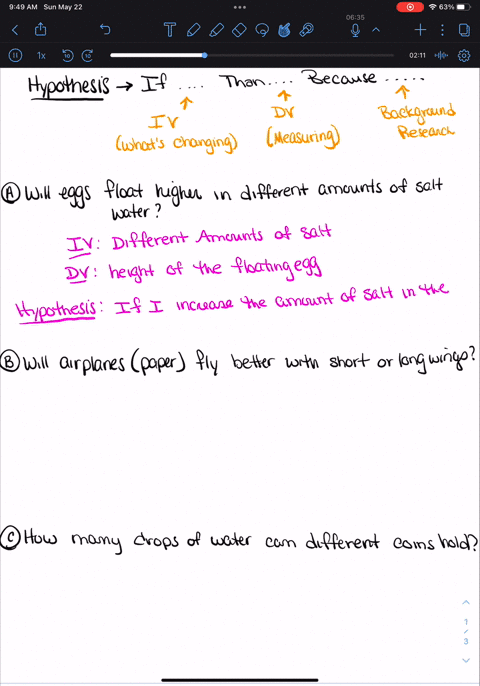 9:49 AM Sun May 22
63%
06:35
1x
10
10
02:11
Hypothesis → If .... Than.... Because .....
IV
DV
Background
Research
(What's changing)
(Measuring)
A Will eggs float higher in different amounts of salt
water?
IV: Different Amounts of salt
DV: height of the floating egg
Hypothesis: If I increase the amount of salt in the
B Will airplanes (paper) fly better with short or long wings?
C How many drops of water can different coins hold?
1
/
3